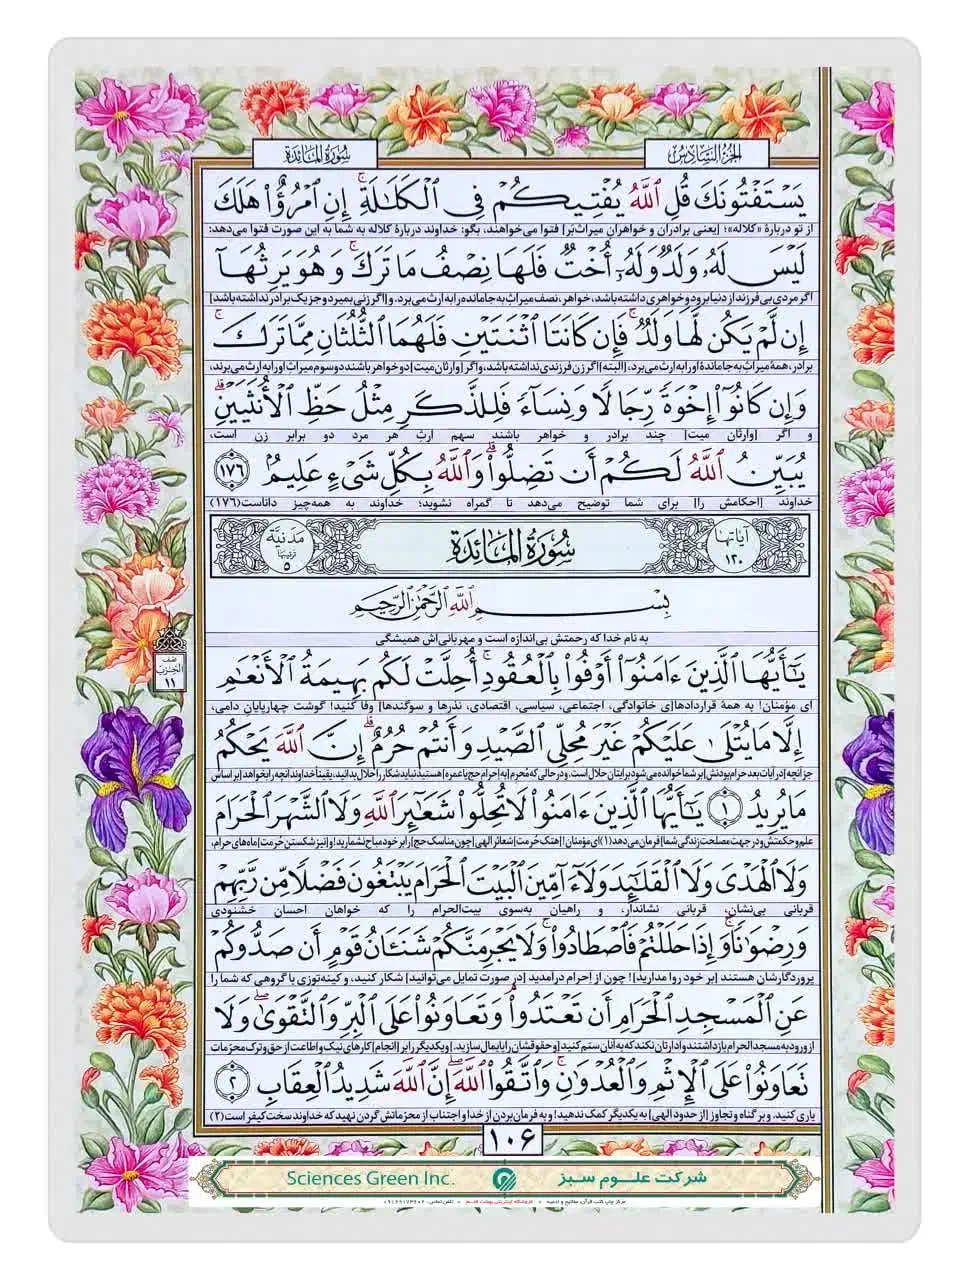 الجزء السادس
سورة المائدة
يَسْتَفْتُونَكَ قُلِ ٱللَّهُ يُفْتِيكُمْ فِى ٱلْكَلَٰلَةِ ۚ إِنِ ٱمْرُؤٌا۟ هَلَكَ
از تو دربارهٔ «کلاله»؛ [یعنی برادران و خواهرانِ میراث‌بَر] فتوا می‌خواهند، بگو: خداوند دربارهٔ کلاله به شما به این صورت فتوا می‌دهد:
لَيْسَ لَهُۥ وَلَدٌ وَلَهُۥٓ أُخْتٌ فَلَهَا نِصْفُ مَا تَرَكَ ۚ وَهُوَ يَرِثُهَآ
اگر مردی بی‌فرزند از دنیا برود و خواهری داشته باشد، خواهر، نصف میراثِ به جامانده را به ارث می‌برد. و [اگر زنی بمیرد و جز یک برادر نداشته باشد]
إِن لَّمْ يَكُن لَّهَا وَلَدٌ ۚ فَإِن كَانَتَا ٱثْنَتَيْنِ فَلَهُمَا ٱلثُّلُثَانِ مِمَّا تَرَكَ ۚ
برادر، همهٔ میراث به جاماندهٔ او را به ارث می‌برد، [البته] اگر زن فرزندی نداشته باشد، و اگر [وارثان میت] دو خواهر باشند دو سوم میراث او را به ارث می‌برند،
وَإِن كَانُوٓا۟ إِخْوَةً رِّجَالًا وَنِسَآءً فَلِلذَّكَرِ مِثْلُ حَظِّ ٱلْأُنثَيَيْنِ ۗ
و اگر [وارثان میت] چند برادر و خواهر باشند سهم ارثِ هر مرد دو برابر زن است،
يُبَيِّنُ ٱللَّهُ لَكُمْ أَن تَضِلُّوا۟ ۗ وَٱللَّهُ بِكُلِّ شَىْءٍ عَلِيمٌۢ ١٧٦
خداوند [احکامش را] برای شما توضیح می‌دهد تا گمراه نشوید؛ خداوند به همه‌چیز داناست(۱۷۶)
آیاتها ١٢٠
سُورَةُ المَائِدَة
مدنیّة ترتیبها ۵
بِسْمِ ٱللَّهِ ٱلرَّحْمَٰنِ ٱلرَّحِيمِ
به نام خدا که رحمتش بی‌اندازه است و مهربانی‌اش همیشگی
يَٰٓأَيُّهَا ٱلَّذِينَ ءَامَنُوٓا۟ أَوْفُوا۟ بِٱلْعُقُودِ ۚ أُحِلَّتْ لَكُم بَهِيمَةُ ٱلْأَنْعَٰمِ
نصف الحزب ١١
ای مؤمنان! به همهٔ قراردادها[ی خانوادگی، اجتماعی، سیاسی، اقتصادی، نذرها و سوگندها] وفا کنید! گوشت چهارپایانِ دامی،
إِلَّا مَا يُتْلَىٰ عَلَيْكُمْ غَيْرَ مُحِلِّى ٱلصَّيْدِ وَأَنتُمْ حُرُمٌ ۗ إِنَّ ٱللَّهَ يَحْكُمُ
جز آنچه [در آیات بعد حرام بودنش] بر شما خوانده می‌شود برایتان حلال است. و درحالی‌که مُحرِم [به إحرام حج یا عمره] هستید نباید شکار را حلال بدانید، یقیناً خداوند آنچه را بخواهد [بر اساس
مَا يُرِيدُ ١ يَٰٓأَيُّهَا ٱلَّذِينَ ءَامَنُوا۟ لَا تُحِلُّوا۟ شَعَٰٓئِرَ ٱللَّهِ وَلَا ٱلشَّهْرَ ٱلْحَرَامَ
علم و حکمتش و در جهت مصلحت زندگی شما] فرمان می‌دهد(۱) ای مؤمنان! [هتک حُرمتِ] شعائر الهی [چون مناسک حج] را بر خود مباح نشمارید! و [نیز شکستن حرمت] ماه‌های حرام،
وَلَا ٱلْهَدْىَ وَلَا ٱلْقَلَٰٓئِدَ وَلَآ ءَآمِّينَ ٱلْبَيْتَ ٱلْحَرَامَ يَبْتَغُونَ فَضْلًا مِّن رَّبِّهِمْ
قربانی بی‌نشان، قربانی نشاندار، و راهیان به‌سوی بیت‌الحرام را که خواهان احسان خشنودی
وَرِضْوَٰنًا ۚ وَإِذَا حَلَلْتُمْ فَٱصْطَادُوا۟ ۚ وَلَا يَجْرِمَنَّكُمْ شَنَـَٔانُ قَوْمٍ أَن صَدُّوكُمْ
پروردگارشان هستند [بر خود روا مدارید]! چون از إحرام درآمدید [در صورت تمایل می‌توانید] شکار کنید، و کینه‌توزی با گروهی که شما را
عَنِ ٱلْمَسْجِدِ ٱلْحَرَامِ أَن تَعْتَدُوا۟ ۘ وَتَعَاوَنُوا۟ عَلَى ٱلْبِرِّ وَٱلتَّقْوَىٰ ۖ وَلَا
از ورود به مسجدالحرام بازداشتند وادارتان نکند که به آنان ستم کنید [و حقوقشان را پایمال سازید.] و یکدیگر را بر [انجام] کارهای نیک و اطاعت از حق و ترک محرمات
تَعَاوَنُوا۟ عَلَى ٱلْإِثْمِ وَٱلْعُدْوَٰنِ ۚ وَٱتَّقُوا۟ ٱللَّهَ ۖ إِنَّ ٱللَّهَ شَدِيدُ ٱلْعِقَابِ ٢
یاری کنید. و بر گناه و تجاوز [از حدود الهی] به یکدیگر کمک ندهید! و به فرمان‌بردن از خدا و اجتناب از محرّماتش گردن نهید که خداوند سخت‌کیفر است(۲)
١٠۶
شرکت علوم سبز
Sciences Green Inc.
مرکز چاپ کتب قرآن، مفاتیح و ادعیه